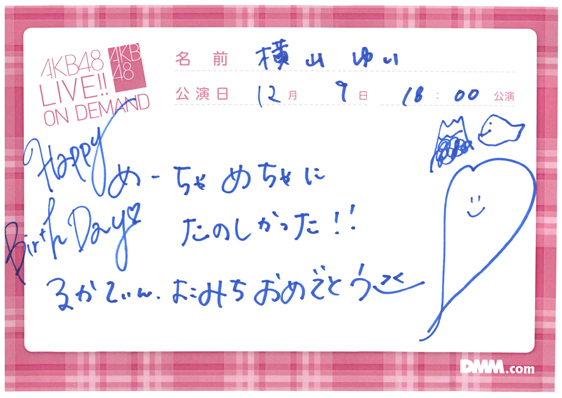 AKB48
LIVE!!
ON DEMAND
AKB
48
名前 横山ゆい
公演日 12月 9日 18:00 公演
Happy
Birth Day♡
めーちゃめちゃに
たのしかった!!
るかてぃん、おみちおめでとう
DMM.com